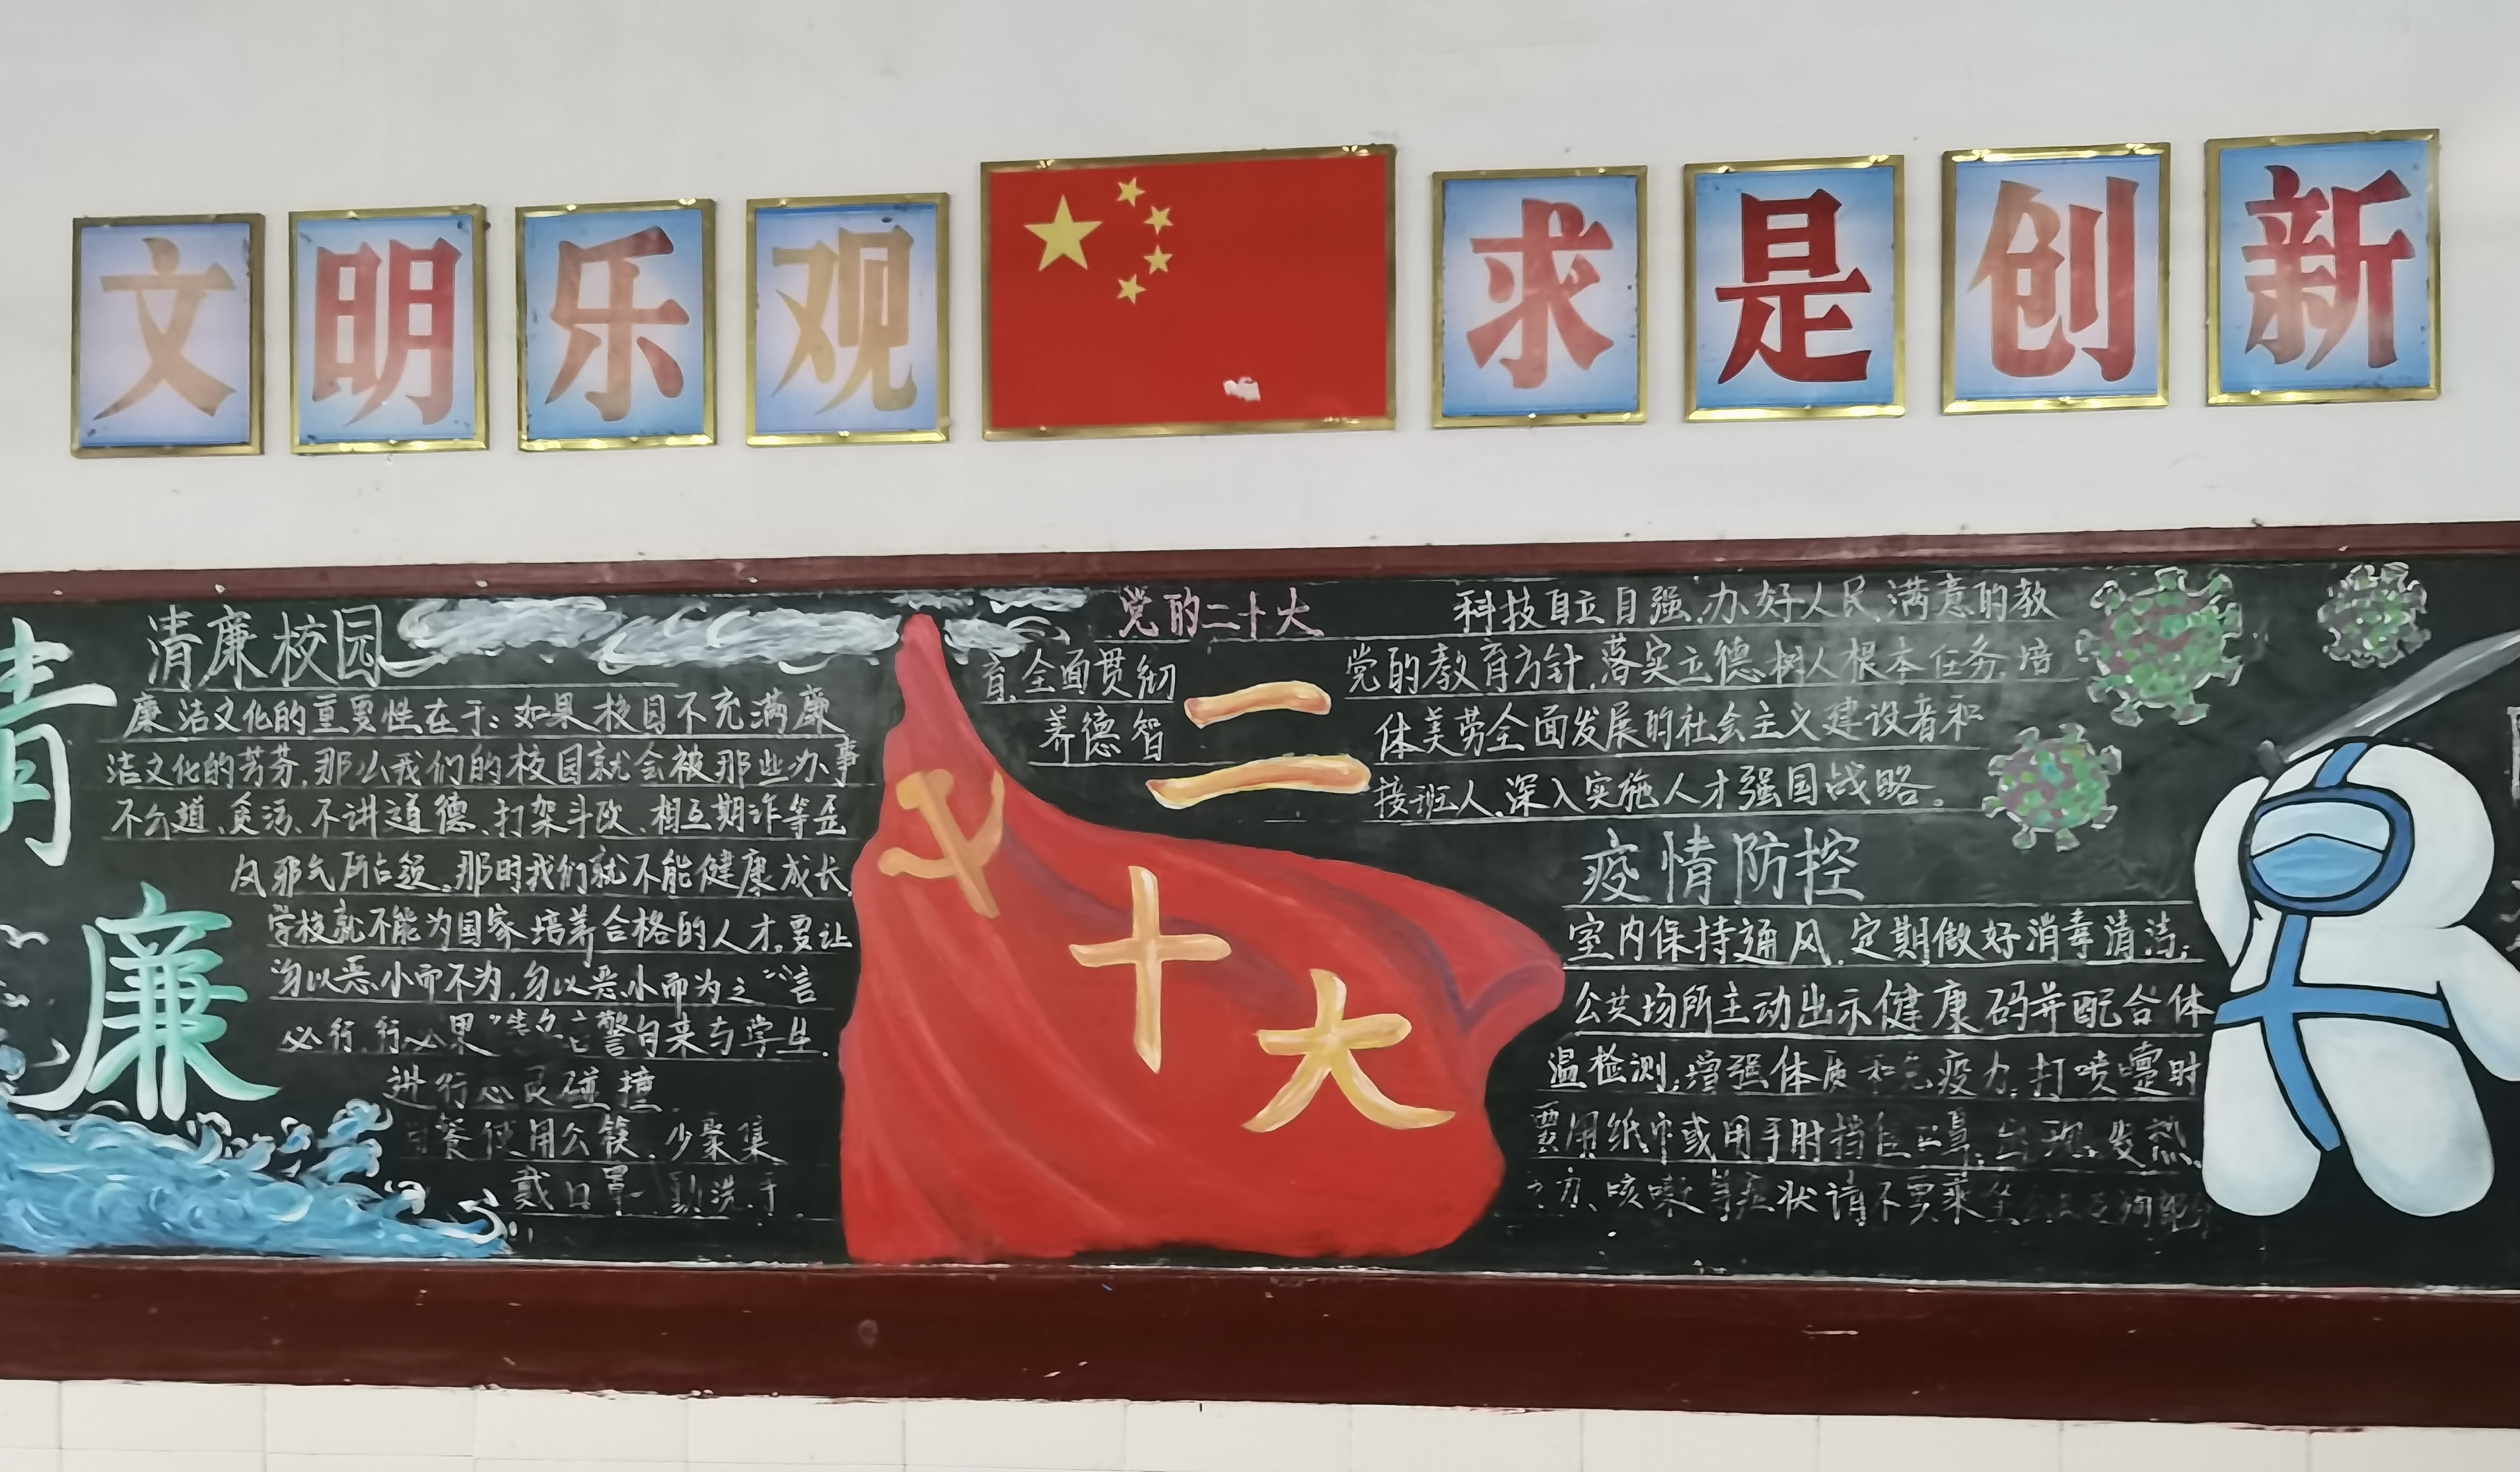 文明乐观 求是创新
清廉
清廉校园
廉洁文化的重要性在于：如果校园不充满廉
洁文化的芳芬，那么我们的校园就会被那些办事
不公道、贪污、不讲道德、打架斗欧、相互期诈等歪
风邪气所占领。那时我们就不能健康成长，
学校就不能为国家培养合格的人才，要让
勿以恶小而不为，勿以恶小而为之“言
必行，行必果”警句来与学生
进行心灵碰撞
餐使用公筷，少聚集
戴口罩 勤洗手
党的二十大
科技自立自强，办好人民满意的教
育，全面贯彻党的教育方针，落实立德树人根本任务，培
养德智体美劳全面发展的社会主义建设者和
接班人，深入实施人才强国战略。
二十大
疫情防控
室内保持通风，定期做好消毒清洁；
公共场所主动出示健康码并配合体
温检测，增强体质和免疫力，打喷嚏时
要用纸巾或用手肘挡住口鼻，出现发热、
乏力、咳嗽等症状请不要乘坐